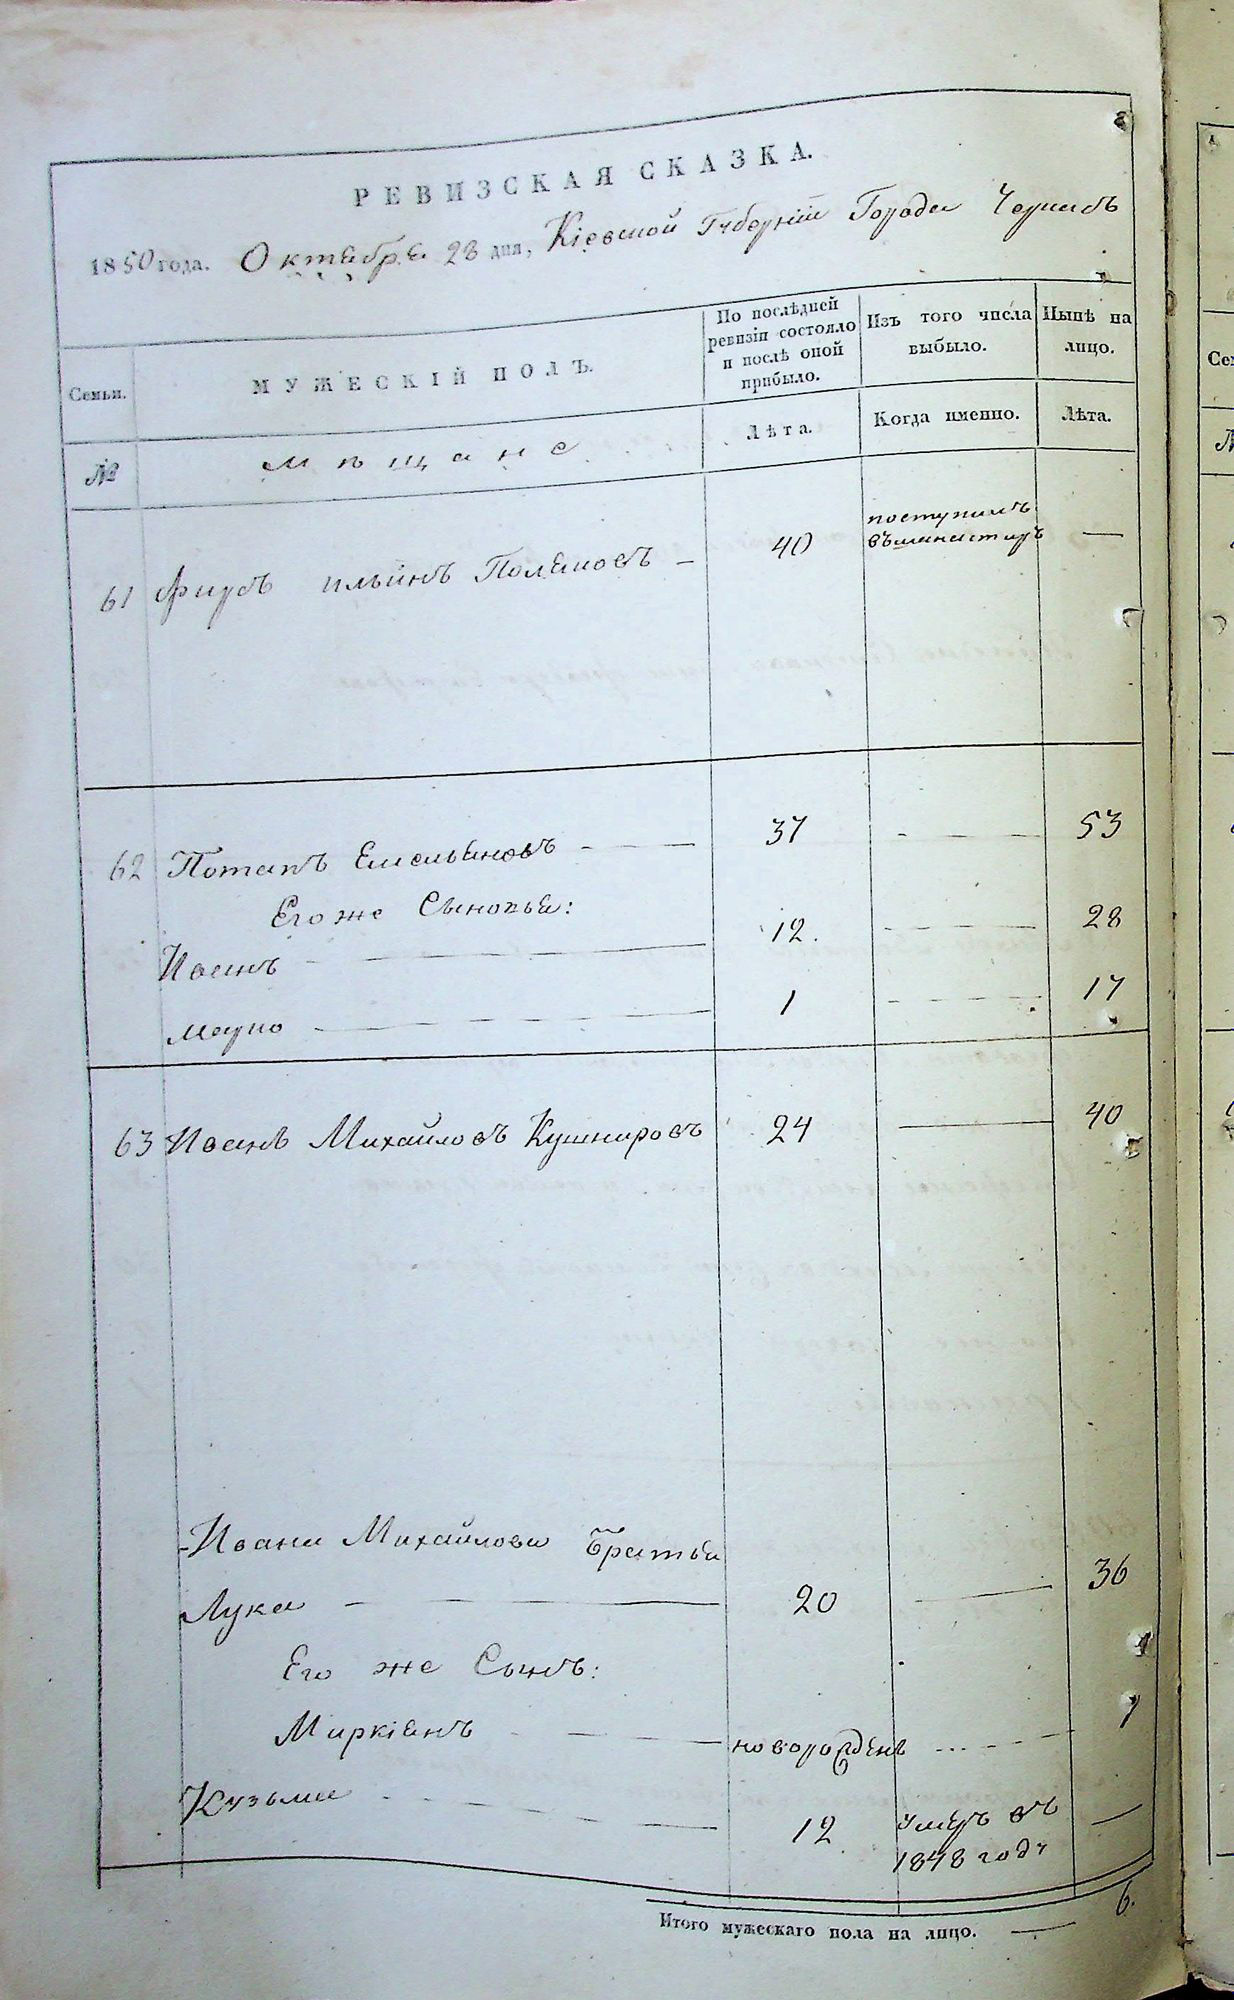 РЕВИЗСКАЯ СКАЗКА.
1850 года. Октября 28 дня, Кіевской Губерніи Города
Семьи.
МУЖЕСКІЙ ПОЛЪ.
По послѣдней ревизіи состояло и послѣ оной прибыло.
Изъ того числа выбыло.
Нынѣ на лицо.
Лѣта.
Когда именно.
Лѣта.
№
мѣщане
61 Ильинъ 40 поступилъ —
62 Потапъ Емельяновъ 37 — 53
Его же Сыновья:
Иванъ 12. — 28
1 — 17
63 Иванъ Михайловъ Кушнировъ 24 — 40
Ивана Михайлова Братья
Лука 20 — 36
Его же Сынъ:
Маркіянъ новорожденъ 7
Кузьма 12 умеръ въ 1848 годѣ —
Итого мужескаго пола на лицо. — 6.